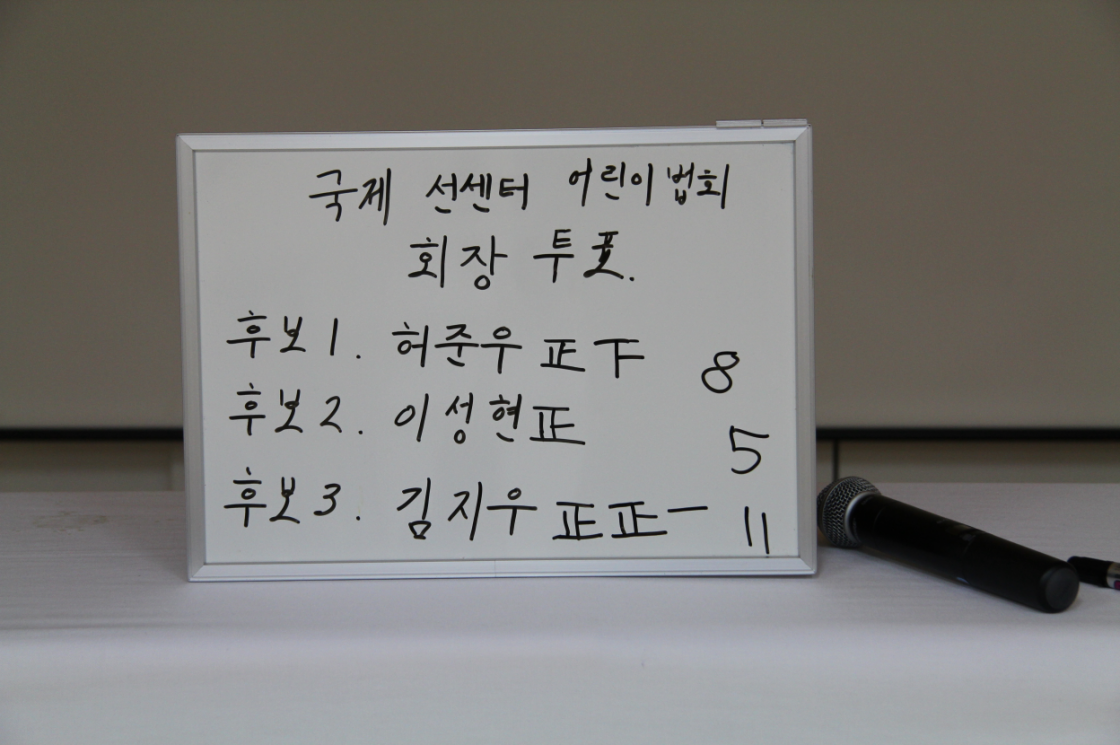 국제 선센터 어린이법회
회장 투표.
후보1. 허준우 正下 8
후보2. 이성현 正 5
후보3. 김지우 正正一 11